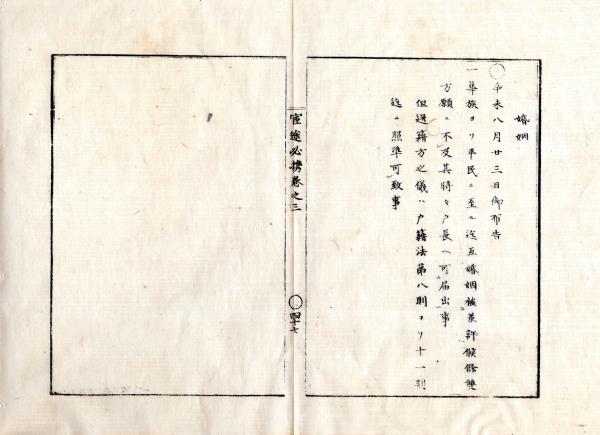 婚姻
○辛未八月廿三日御布告
一華族ヨリ平民ニ至ル迄互婚姻被差許候條雙
方願ニ不及其時々戸長ヘ可届出事
但送籍方之儀ハ戸籍法第八則ヨリ十一則
迄ニ照準可致事
官途必携巻之三
○四十七